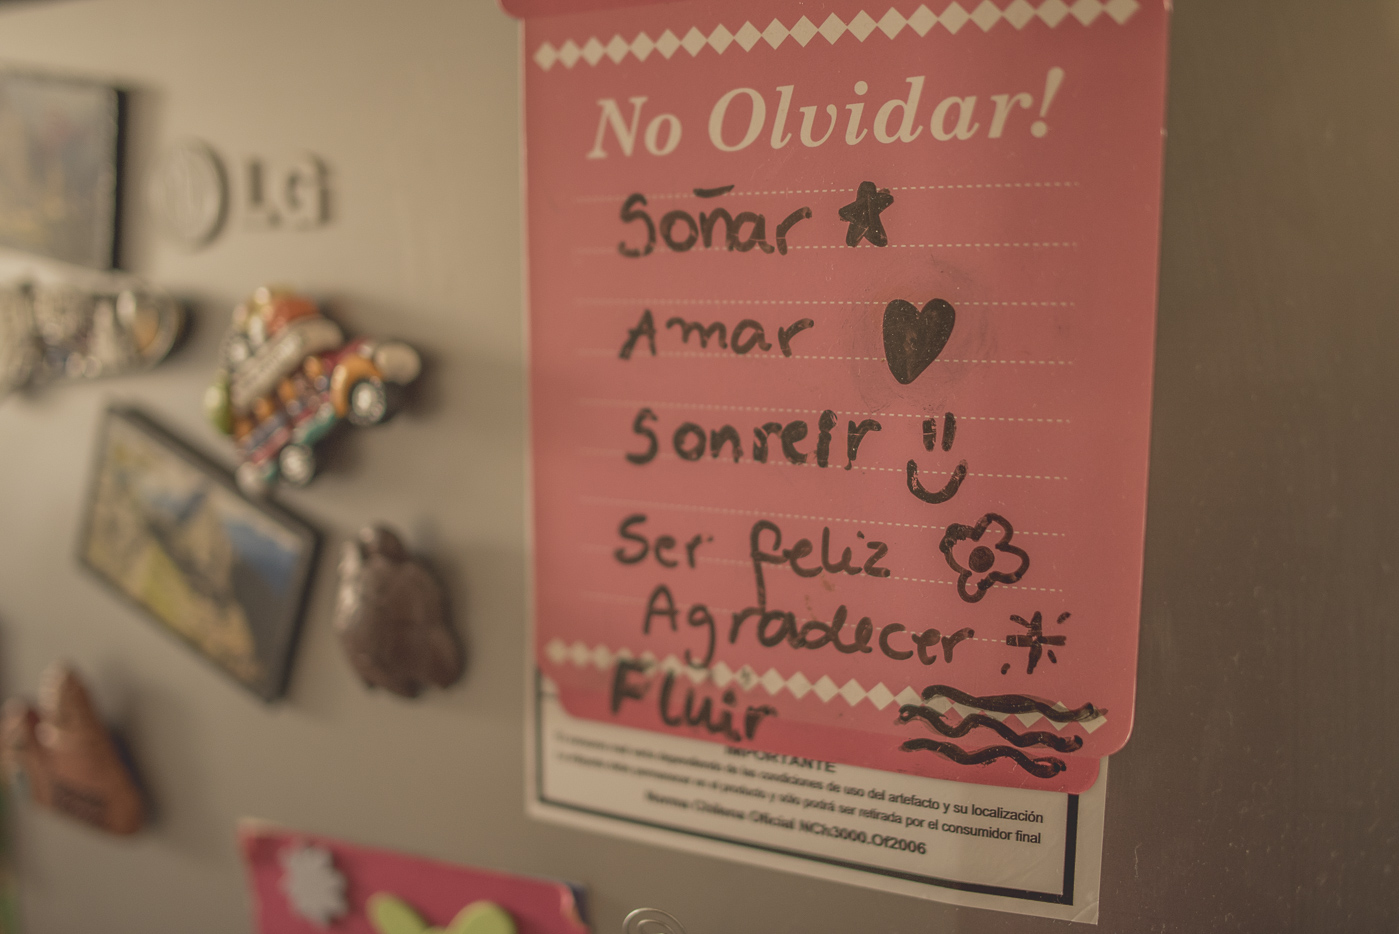 LG
No Olvidar!
Soñar
Amar
Sonreir
Ser feliz
Agradecer
Fluir
IMPORTANTE
de las condiciones de uso del artefacto y su localización
en el producto y sólo podrá ser retirada por el consumidor final
Norma Chilena Oficial NCh3000.Of2006